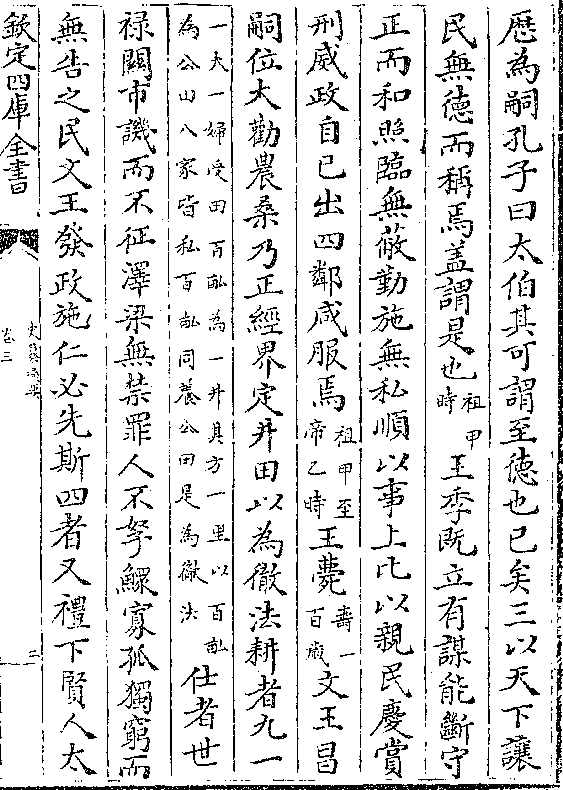 歴為嗣孔子曰太伯其可謂至徳也已矣三以天下讓
民無徳而稱焉盖謂是也祖甲時王季既立有謀能斷守
正而和照臨無蔽勤施無私順以事上比以親民慶賞
刑威政自已出四鄰咸服焉祖甲至帝乙時王薨壽一百歳文王昌
嗣位大勸農桑乃正經界定井田以為徹法耕者九一
一夫一婦受田百畝為一井其方一里以百畝為公田八家皆私百畝同養公田是為徹法仕者世
禄關市譏而不征澤梁無禁罪人不孥鰥寡孤獨窮而
無告之民文王發政施仁必先斯四者又禮下賢人太
欽定四庫全書
卷三
二